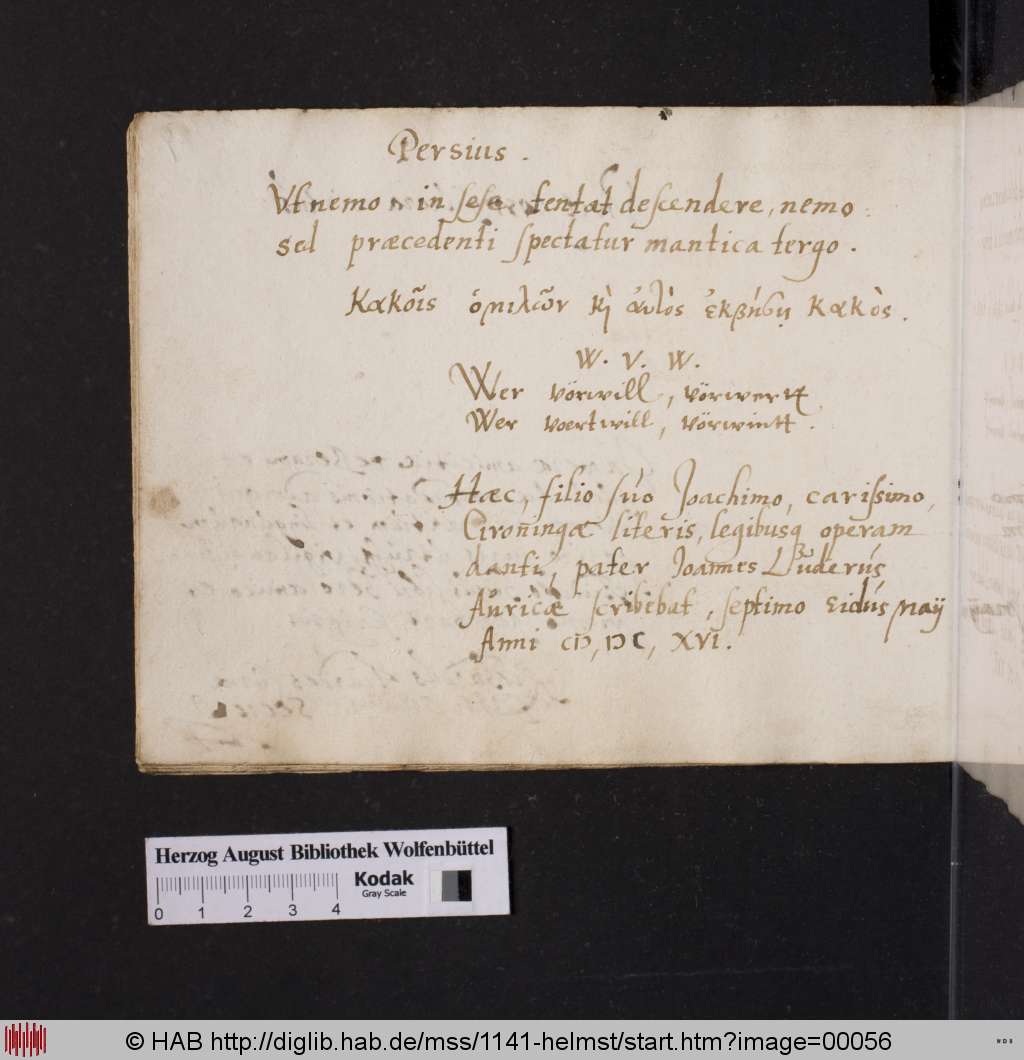 Persius.
Vt nemo in sese tentat descendere, nemo
sed præcedenti spectatur mantica tergo.
Κακοῖς ὁμιλῶν κὶ ἀυτὸς ἐκβήσῃ κακὸς.
W. V. W.
Wer vörwill, vörwertt
Wer voertwill, vörwintt.
Hæc, filio suo Joachimo, carissimo,
Groningæ literis, legibusq operam
danti, pater Joannes Lüderus
Auricæ scribebat, septimo eidus Maij
Anni CIƆ, IƆC, XVI.
Herzog August Bibliothek Wolfenbüttel
Kodak
Gray Scale
0 1 2 3 4
© HAB http://diglib.hab.de/mss/1141-helmst/start.htm?image=00056